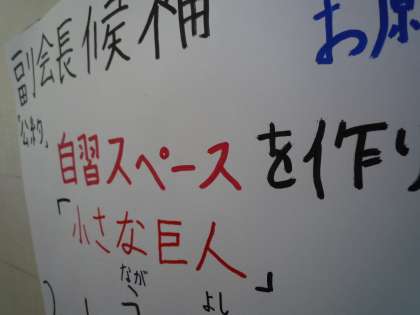 副会長候補
お原
「公約」
自習スペースを作り
「小さな巨人」
なが よし